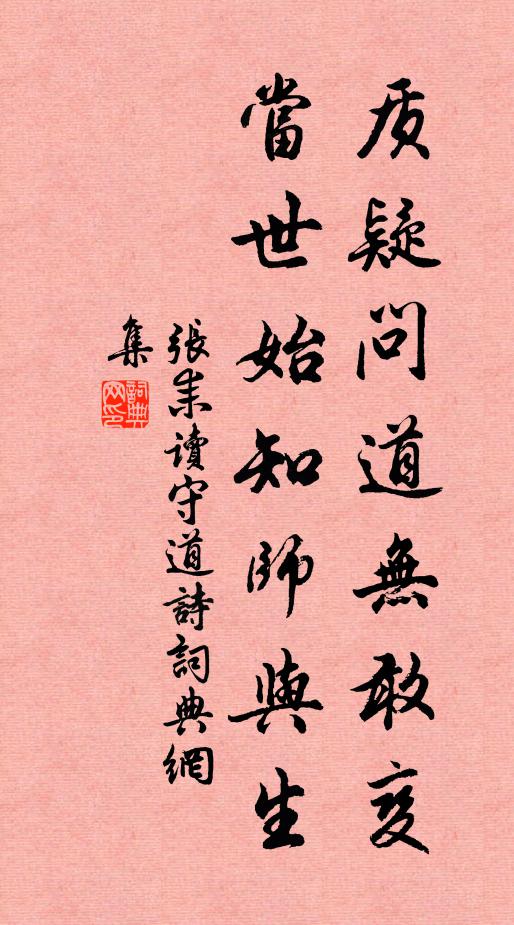 质疑問道無敢变
當世始知師與生
張耒讀守道詩詞典網
集
詞典
网印